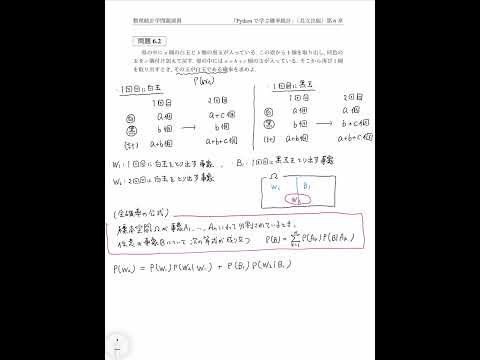 数理統計学問題演習 「Pythonで学ぶ確率統計」(共立出版)第6章
問題 6.2
壺の中にa個の白玉とb個の黒玉が入っている.この壺から1個を取り出し,同色の
玉をc個付け加えて戻す.壺の中にはa+b+c個の玉が入っている.そこから再び1個
を取り出すとき,その玉が白玉である確率を求めよ.
P(W₂)
・1回目に白玉 ・1回目に黒玉
1回目 2回目 1回目 2回目
白 a個 a+c個 白 a個 a個
黒 b個 → b個 黒 b個 → b+c個
(計) a+b個 a+b+c個 (計) a+b個 a+b+c個
W₁:1回目に白玉をとり出す事象, B₁:1回目に黒玉をとり出す事象
W₂:2回目に白玉をとり出す事象
Ω
W₁ B₁
W₂
(全確率の公式)
標本空間Ωが事象A₁, …, Anにわって分割されているとき,
任意の事象Bについて次の等式が成り立つ P(B)=Σ_{k=1}^{n} P(A_k)P(B|A_k)
P(W₂) = P(W₁)P(W₂|W₁) + P(B₁)P(W₂|B₁)